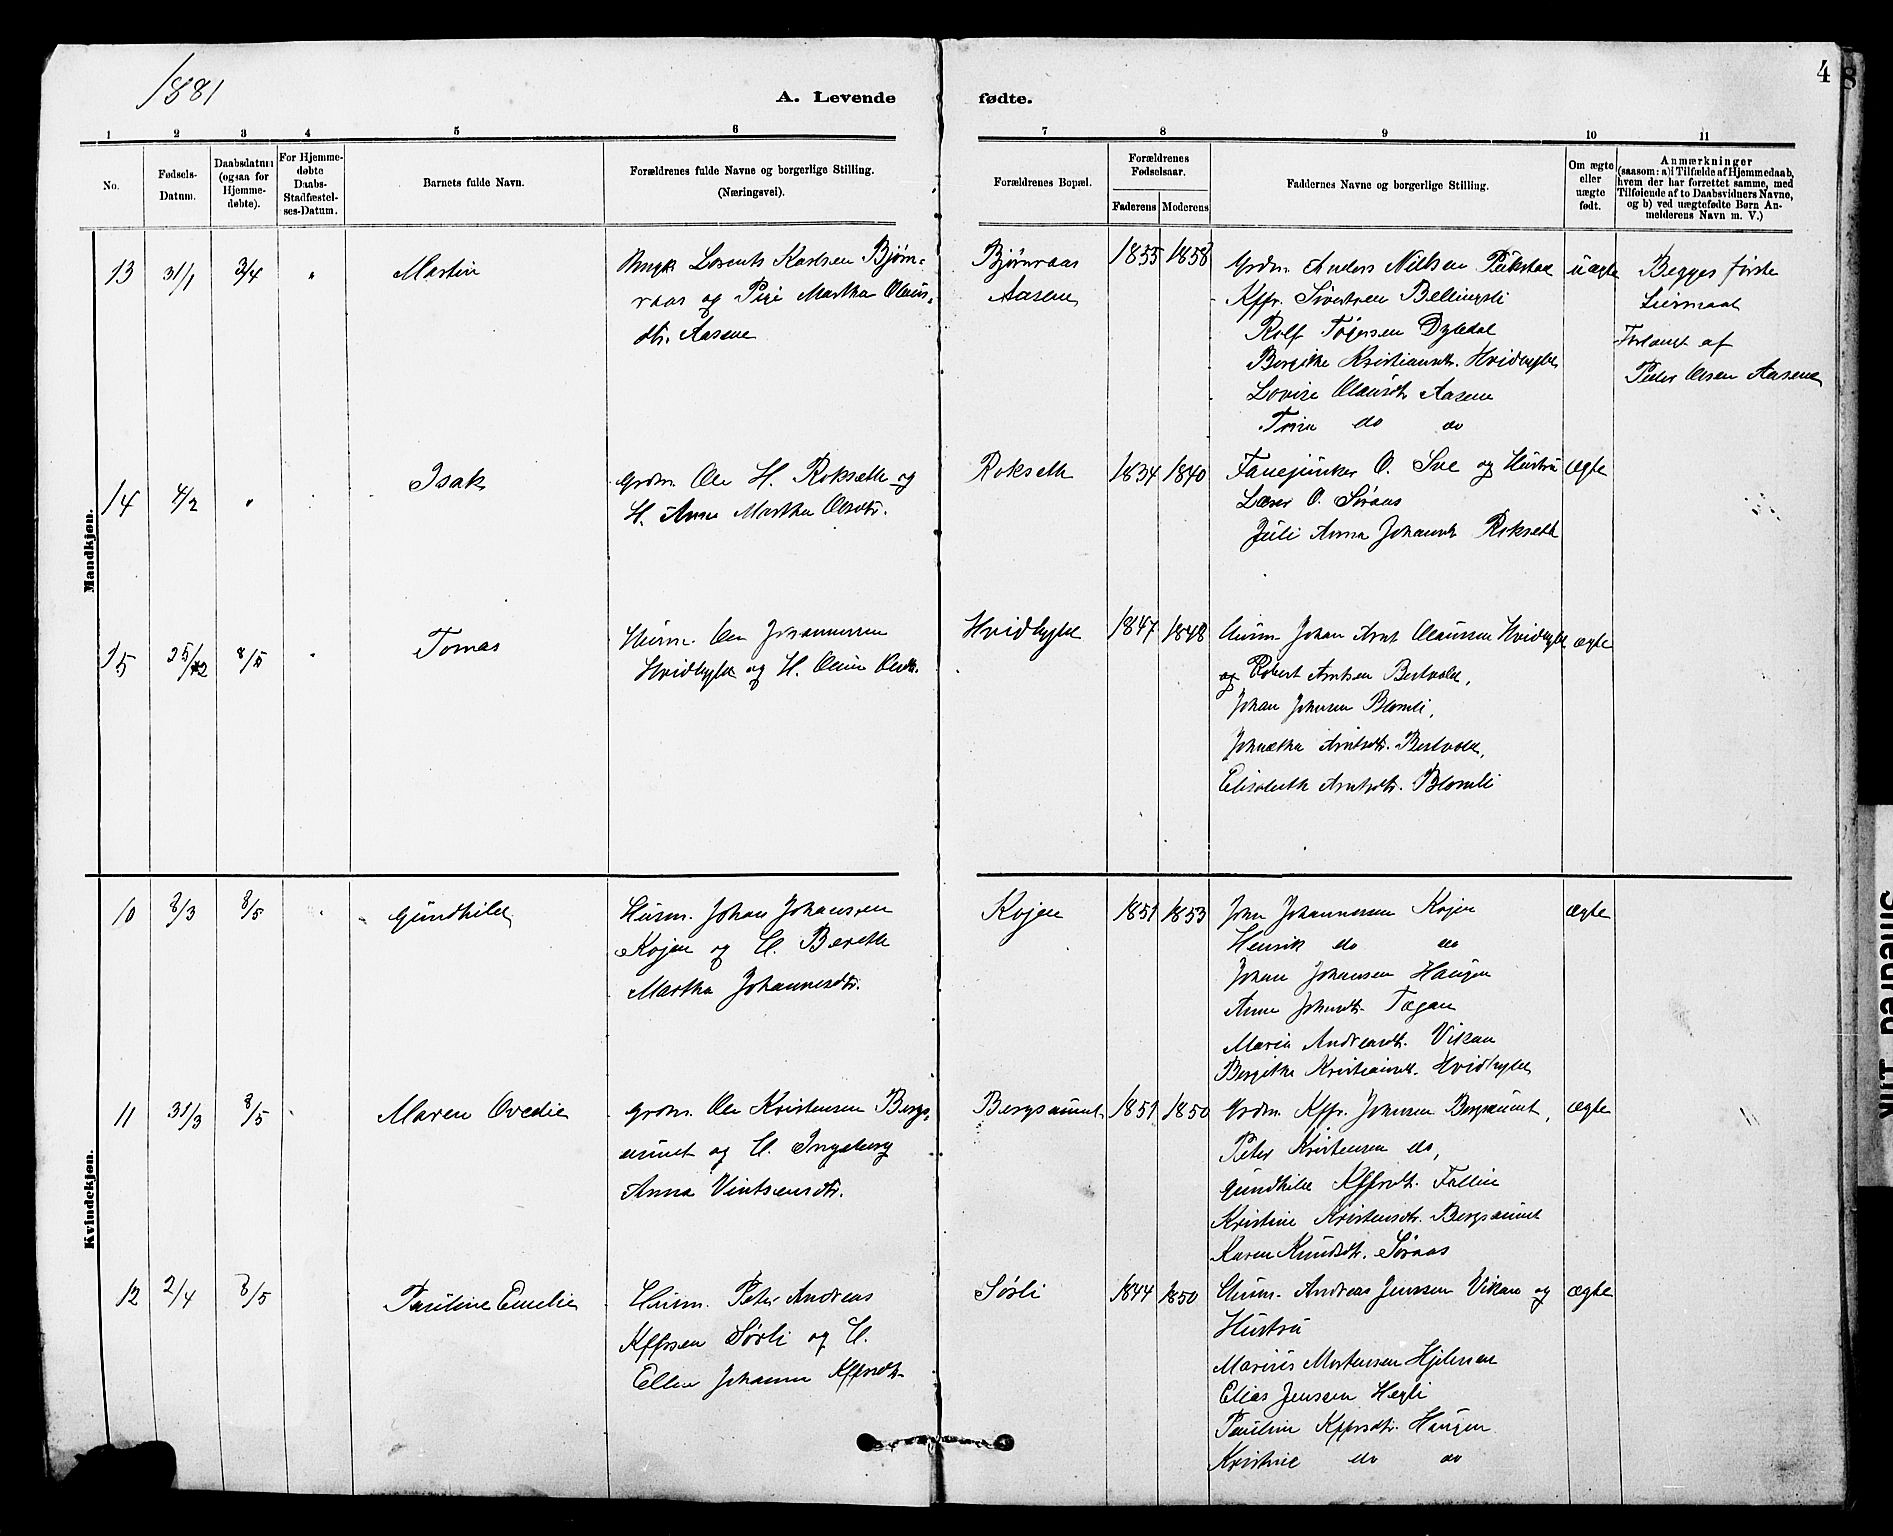 1881
4
8
A. Levende fødte.
1 2 3 4 5 6 7 8 9 10 11
No.
Fødsels-
Datum.
Daabsdatum
(ogsaa for
Hjemme-
døbte).
For Hjemme-
døbte
Daabs-
Stadfæstel-
ses-Datum.
Barnets fulde Navn.
Forældrenes fulde Navne og borgerlige Stilling.
(Næringsvei).
Forældrenes Bopæl.
Forældrenes
Fødselsaar.
Faderens Moderens
Faddernes Navne og borgerlige Stilling.
Om ægte
eller
uægte
født.
Anmærkninger
(saasom: a) i Tilfælde af Hjemmedaab,
hvem der har forrettet samme, med
Tilføiende af to Daabsvidners Navne,
og b) ved uægtefødte Børn An-
melderens Navn m. V.)
Mandkjøn.
13
31/1
3/4
"
Martin
Ungk Lorents Karlsen Bjørn-
raas og Pige Martha Olaus-
dtr. Aasene
Bjørnraas
Aasene
1855
1858
Grdm. Anders Nilsen
Kffr. Sivertsen Bellingsli
Rolf
Bergithe Kristiansdt. Hvidbygle
Lovise Olausdt. Aasene
Trine do do
uægte
Begges første
Leiermaal
Forlangt af
Peter Olsen Aasene
14
4/2
"
Isak
Grdm. Ole H. Rokseth og
H. Anne Martha Olsdtr.
Rokseth
1834
1840
Fanejunker O. Sve og Hustru
O. Søraas
Juli Anna Johansdt. Rokseth
ægte
15
25/12
8/5
"
Tomas
Husm. Ole Johannessen
Hvidbygle og H. Oline Olsdt.
Hvidbygle
1847
1848
Husm. Johan Arnt Olaussen Hvidbygle
og Robert Arntsen Bertvold,
Johan Johnsen Blomli,
Arntsdtr. Bertvold,
Elisabeth Arntsdtr. Blomli
ægte
Kvindekjøn.
10
8/3
8/5
Gundhild
Husm. Johan Johansen
Kojen og H. Bereth
Martha Johannesdtr.
Kojen
1851
1853
John Johannessen Kojen
Henrik do do
Johan Johansen Haugen
Anne Johnsdt. Tøgan
Maria Andreasdt. Vikan
Bergithe Kristiansdt. Hvidbygle
ægte
11
31/3
8/5
Maren Ovedie
Grdm. Ole Kristensen Berg-
sunet og H. Ingeborg
Anna Vintsensdtr.
Bergsaunet
1851
1850
Grdm. Kffr. Johnsen Bergsaunet,
Peter Kristensen do,
Gundhild Kffrsdt. Fallin
Kristine Kristensdtr. Bergsaunet
Karen Knudsdt. Søraas
ægte
12
2/4
8/5
Pauline Emelie
Husm. Peter Andreas
Kffrsen Sørli og H.
Ellen Johanna Kffrsdt.
Sørli
1844
1850
Husm. Andreas Jenssen Vikan og
Hustru
Marius Mortensen
Elias Jensen Hegli
Pauline Kffrsdtr. Haugen
Kristine do do
ægte